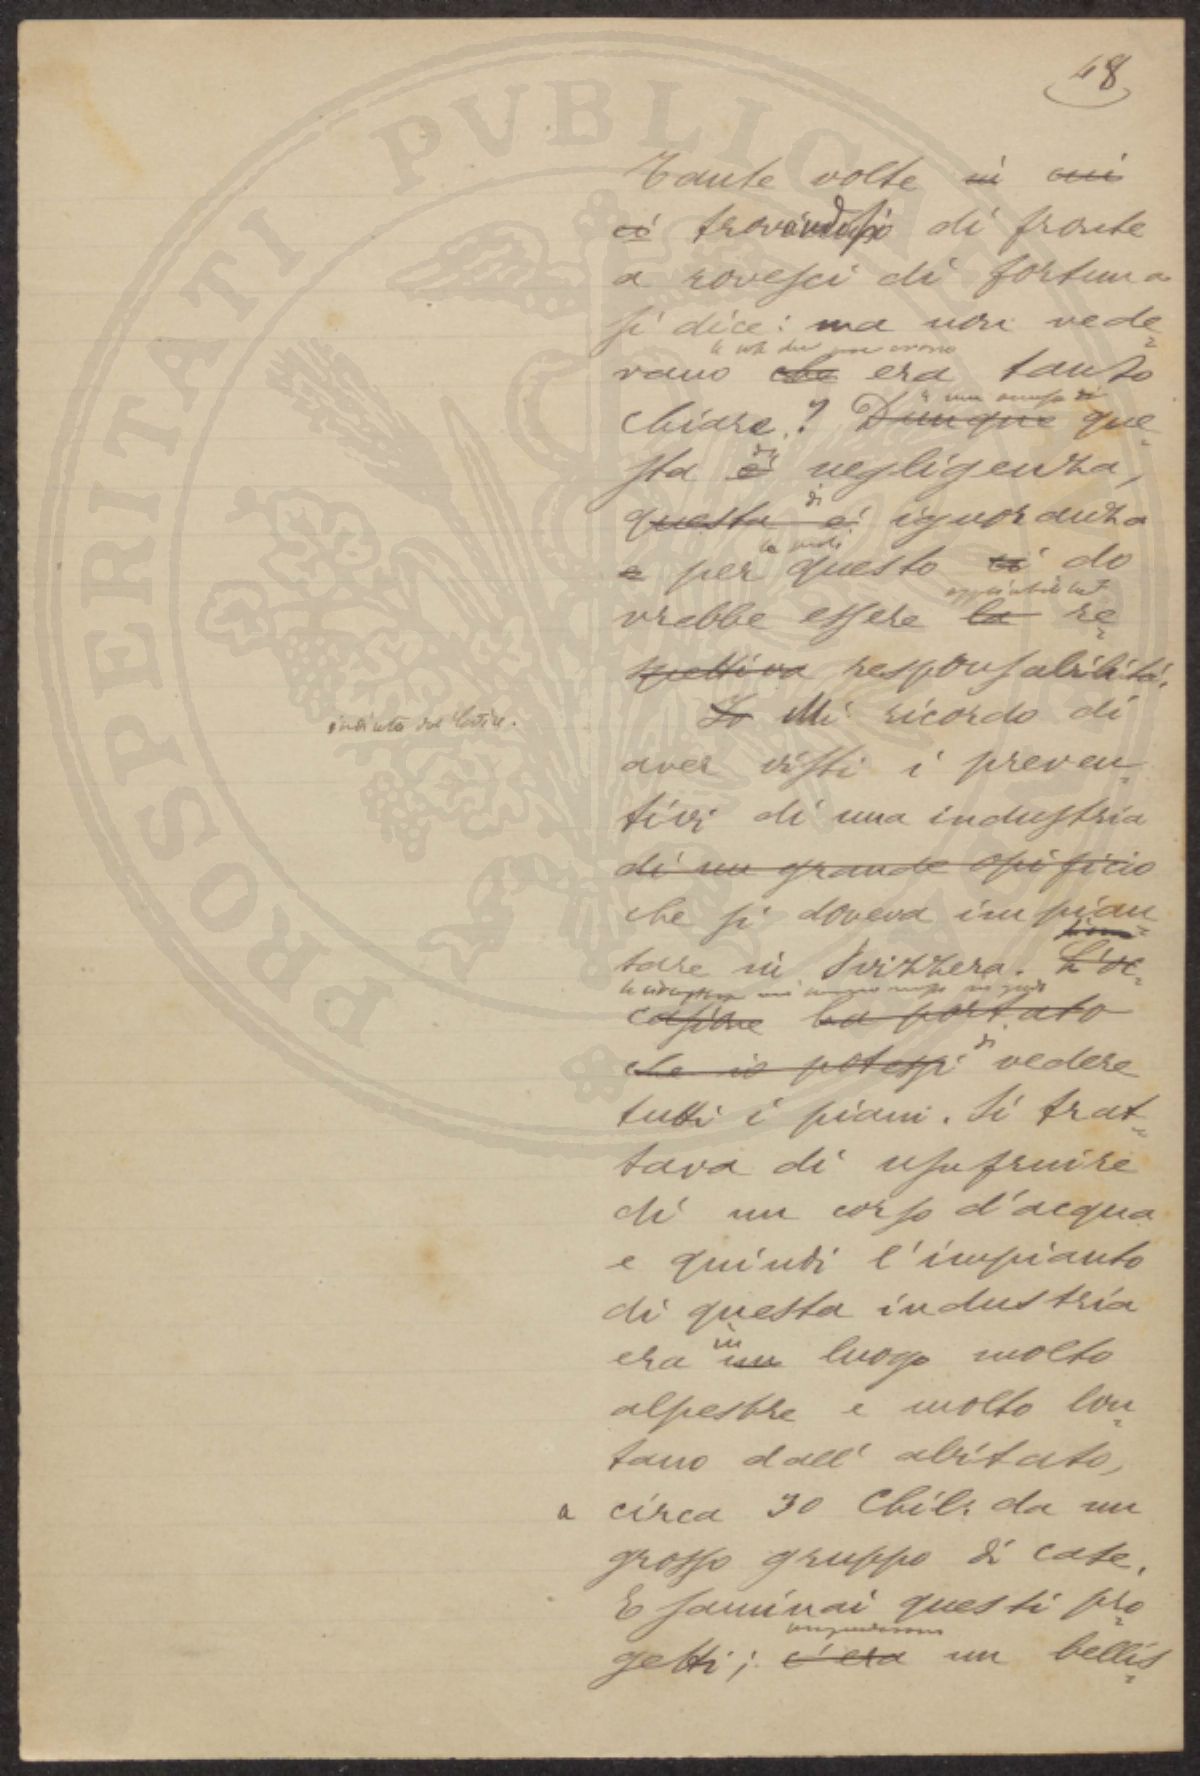 48
Tante volte in cui
ci trovandosi di fronte
a rovesci di fortuna
si dice: ma non vede-
vano che era tanto
chiare? Dunque que-
di
sta è negligenza,
di
questa è ignoranza
e per questo ci do
vrebbe essere la re-
spettiva responsabilità.
Io Mi ricordo di
aver visti i preven-
tivi di una industria
di un grande opificio
che si doveva impian-
tare in Svizzera. L'oc-
casione ha portato
di
che io potessi vedere
tutti i piani. Si trat-
tava di usufruire
di un corso d'acqua
e quindi l'impianto
di questa industria
in
era un luogo molto
alpestre e molto lon-
tano dall'abitato,
a circa 30 Chil. da un
grosso gruppo di case.
Esaminai questi pro-
getti; c'era un bellis-
PROSPERITATI PVBLICAE